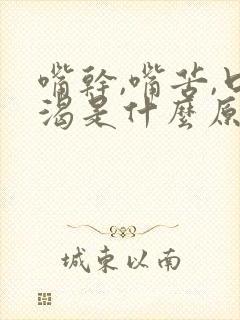 嘴幹,嘴苦,口
渴是什麼原
城東以南